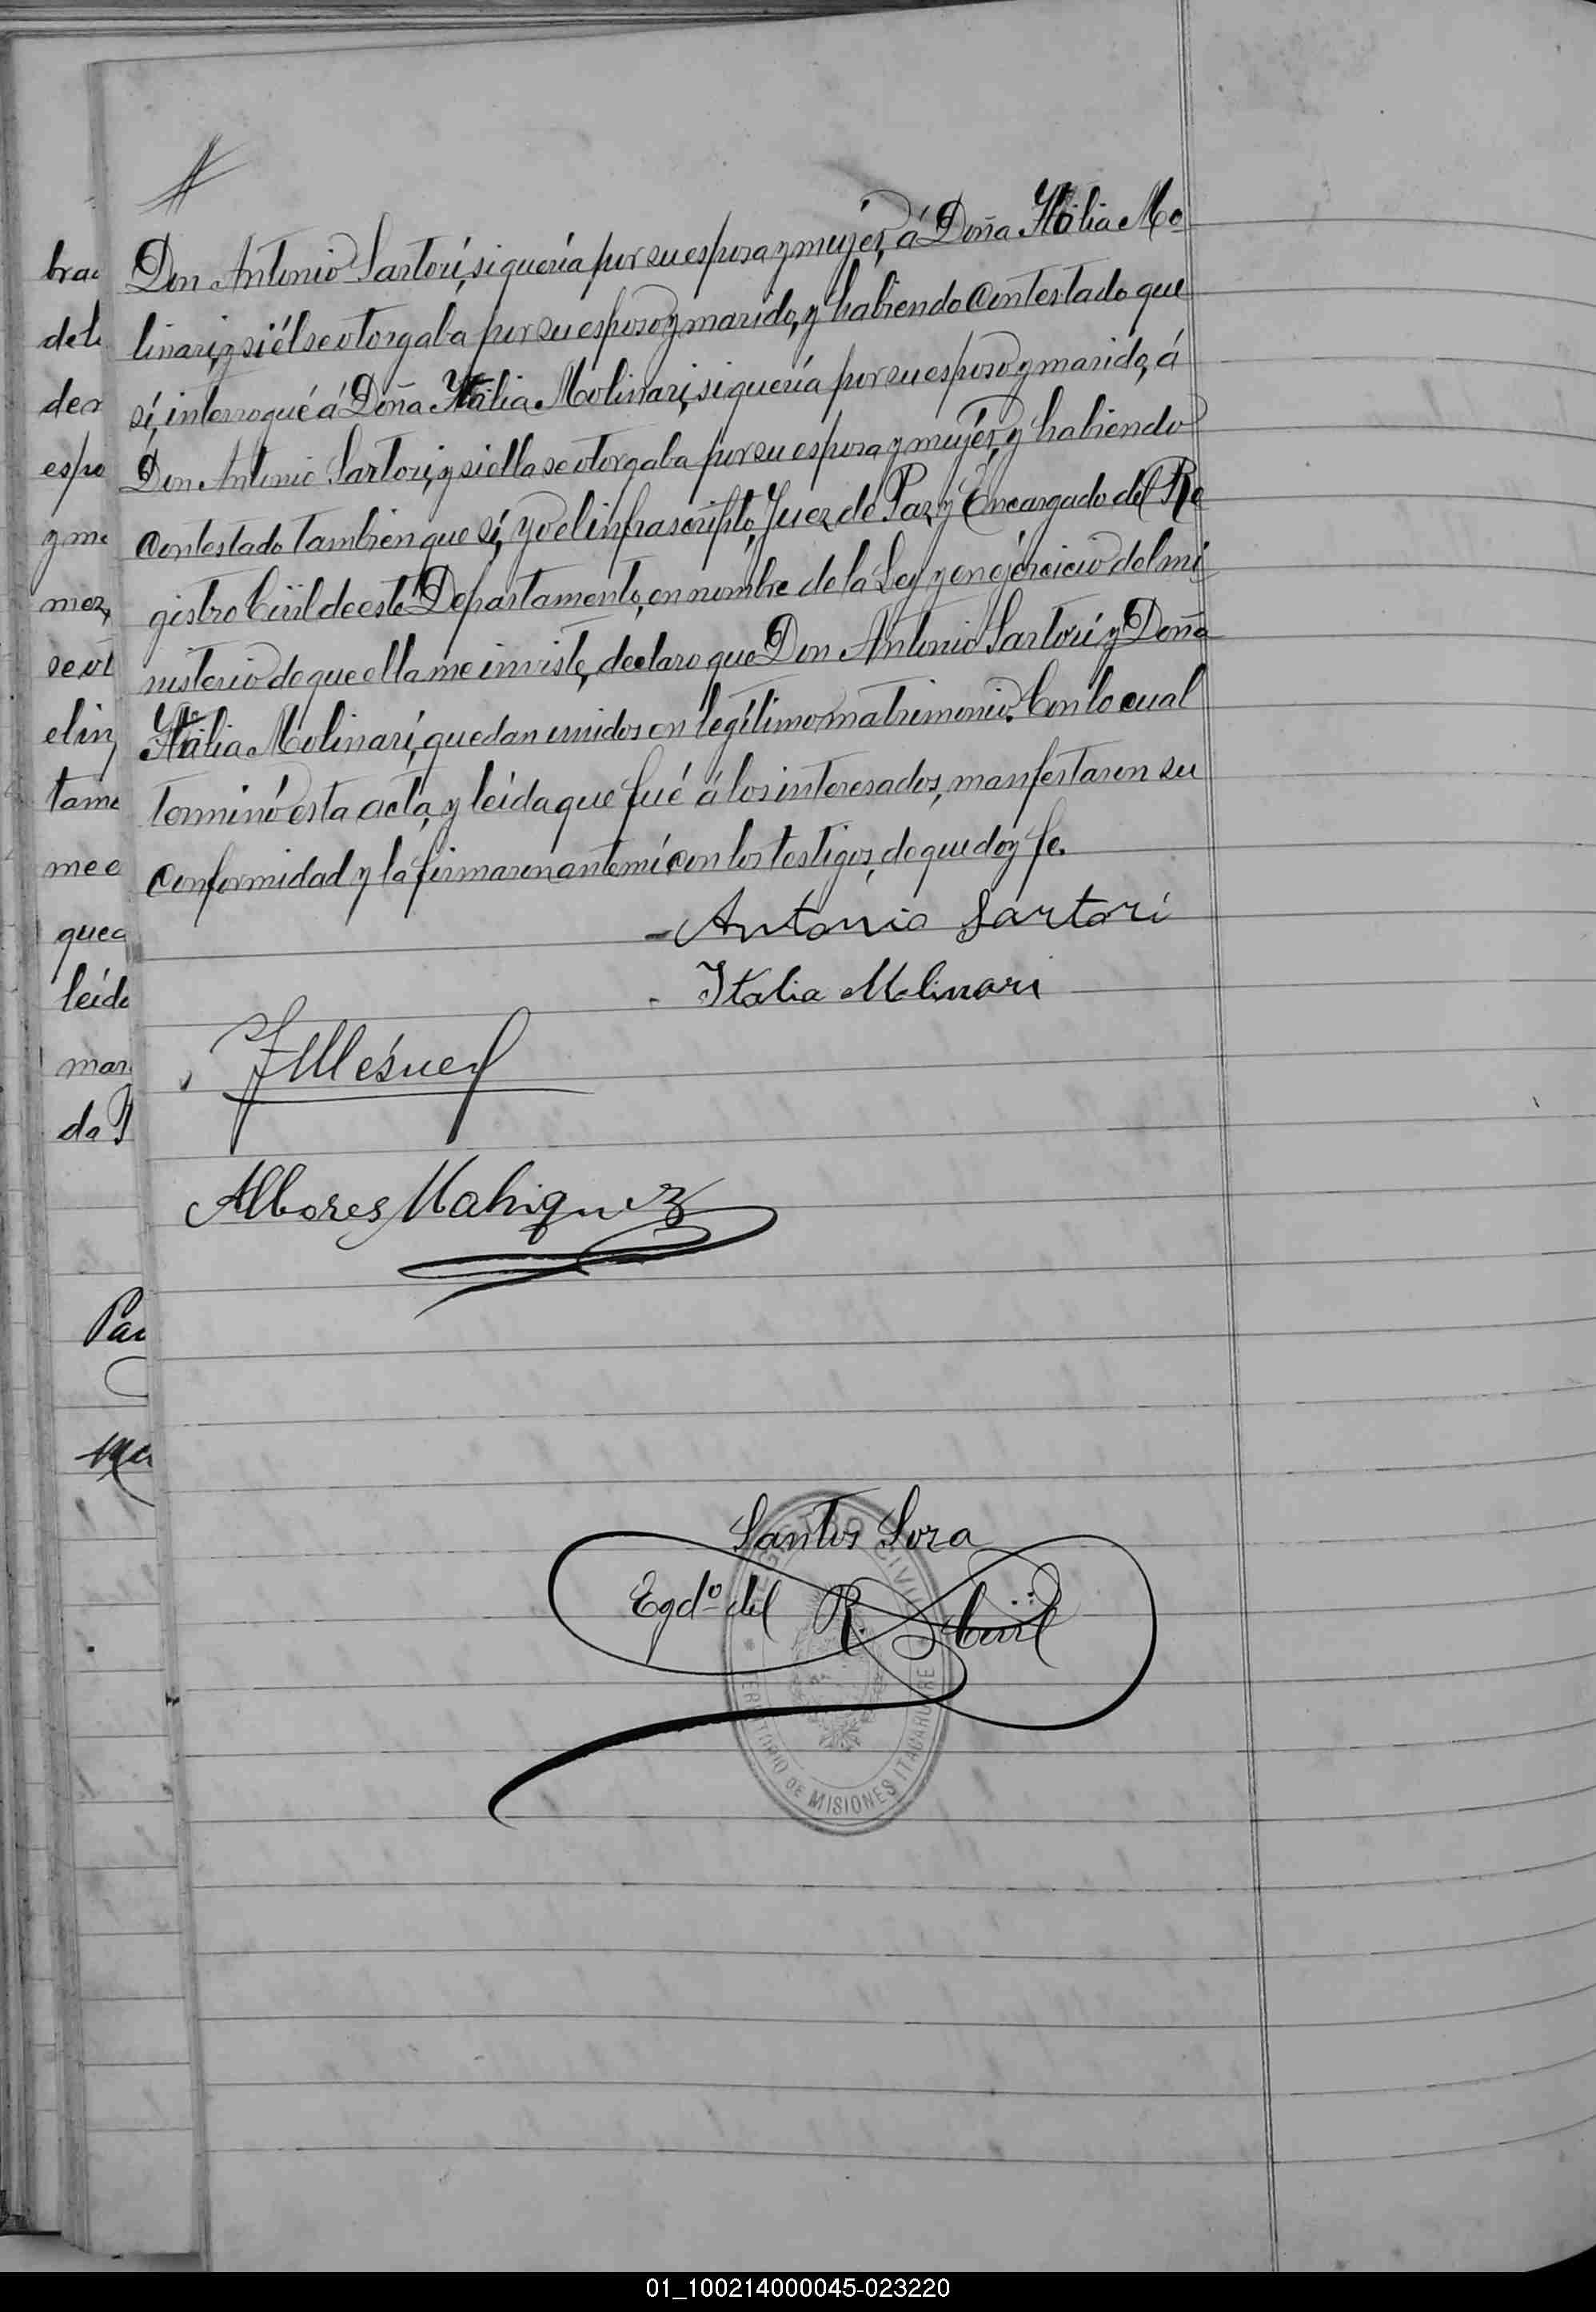 Don Antonio Sartori, si quería por su esposa y mujér, á Doña Itália Mo
linari, y si él se otorgaba por su esposo y marido, y habiendo contestado que
sí, interrogué á Doña Itália Molinari, si quería por su esposo y marido, á
Don Antonio Sartori, y si ella se otorgaba por su esposa y mujér, y habiendo
contestado tambien que sí, yo el infrascripto, Juez de Paz y Encargado del Re
gistro Civil de este Departamento, en nombre de la Ley y en ejércicio del mi
nisterio de que ella me inviste, declaro que Don Antonio Sartori y Doña
Itália Molinari, quedan unidos en legítimo matrimonio. Con lo cual
terminó esta acta, y leída que fué á los interesados, manfestaron su
conformidad y la firmaron ante mí con los testigos, de que doy fe.
Antonio Sartori
Italia Molinari
Albores Mahiquez
Santos Sosa
Egdo del R. Civil
REGISTRO CIVIL
TERRITORIO DE MISIONES ITACARUARE
brac
de l
der
espo
y me
mez,
se ot
el in
tame
me e
qued
leída
man
da
Pau
Ma
01_100214000045-023220